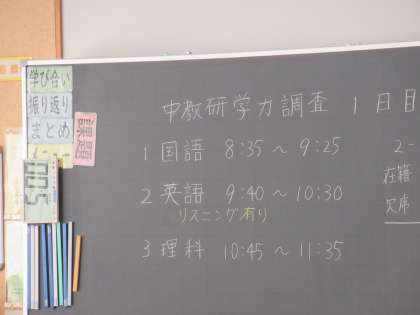 中教研学力調査 1日目
1 国語 8:35 ～ 9:25
2 英語 9:40 ～ 10:30
リスニング有り
3 理科 10:45 ～ 11:35
2-
在籍
欠席
学び合い
振り返り
まとめ
課題